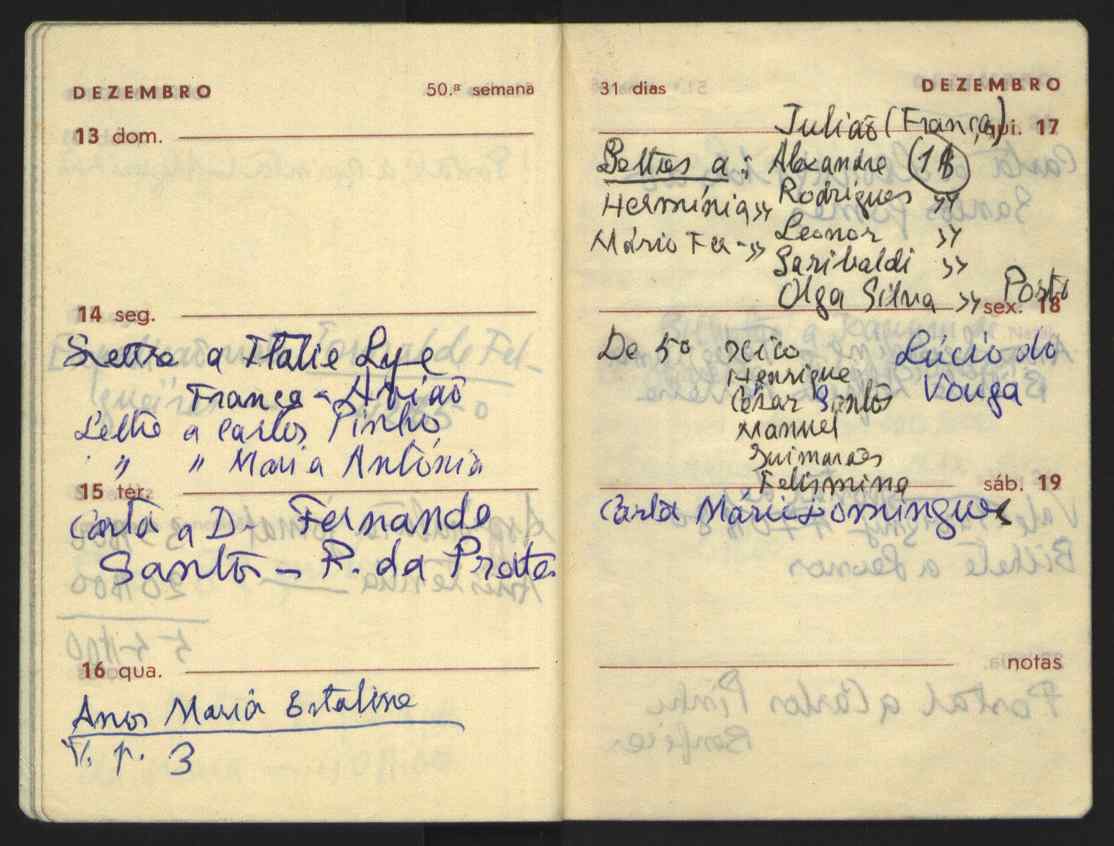 DEZEMBRO 50.ª semana
13 dom.
14 seg.
a Italie Lyre
França - Avião
a Carlos Pinho
" " Maria Antónia
15 ter.
Carta a D. Fernanda
Santos - R. da Prata
16 qua.
Anos Maria Estaline
V. p. 3
31 dias DEZEMBRO
Julião (França)
qui. 17
Selos a: Alexandre (1$)
Hermínia » Rodrigues »
Mário Fer- » Leonor »
Garibaldi »
Olga Silva » Porto
sex. 18
De 50 Xico Lúcio do
Henrique Vouga
César Santos
Manuel
Guimarães
Felismina
sáb. 19
Carta Mário Domingues
notas